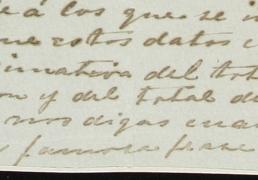 á los que se i
ue estos datos c
imativa del tot
on y del total de
nos digas cuan
famosa frase